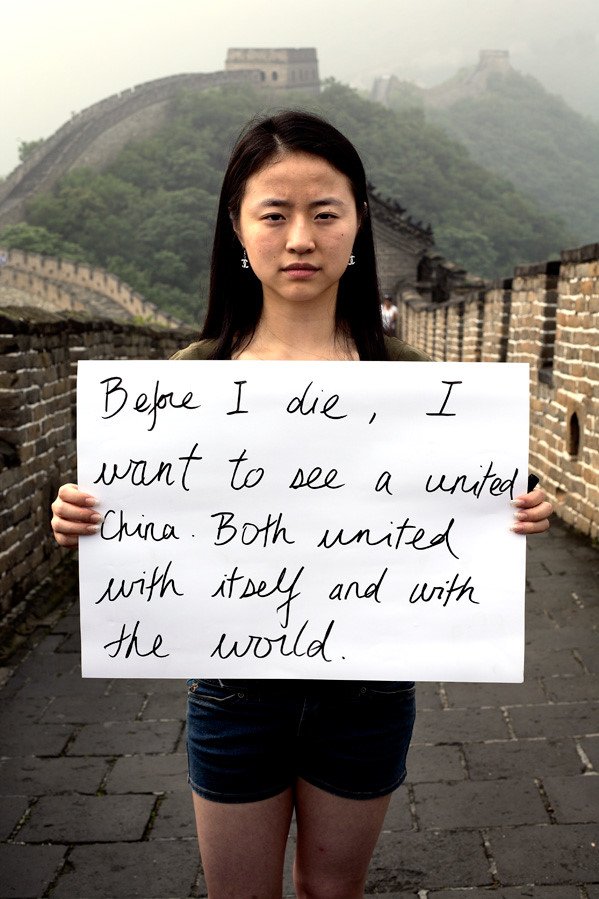 Before I die, I
want to see a united
China. Both united
with itself and with
the world.